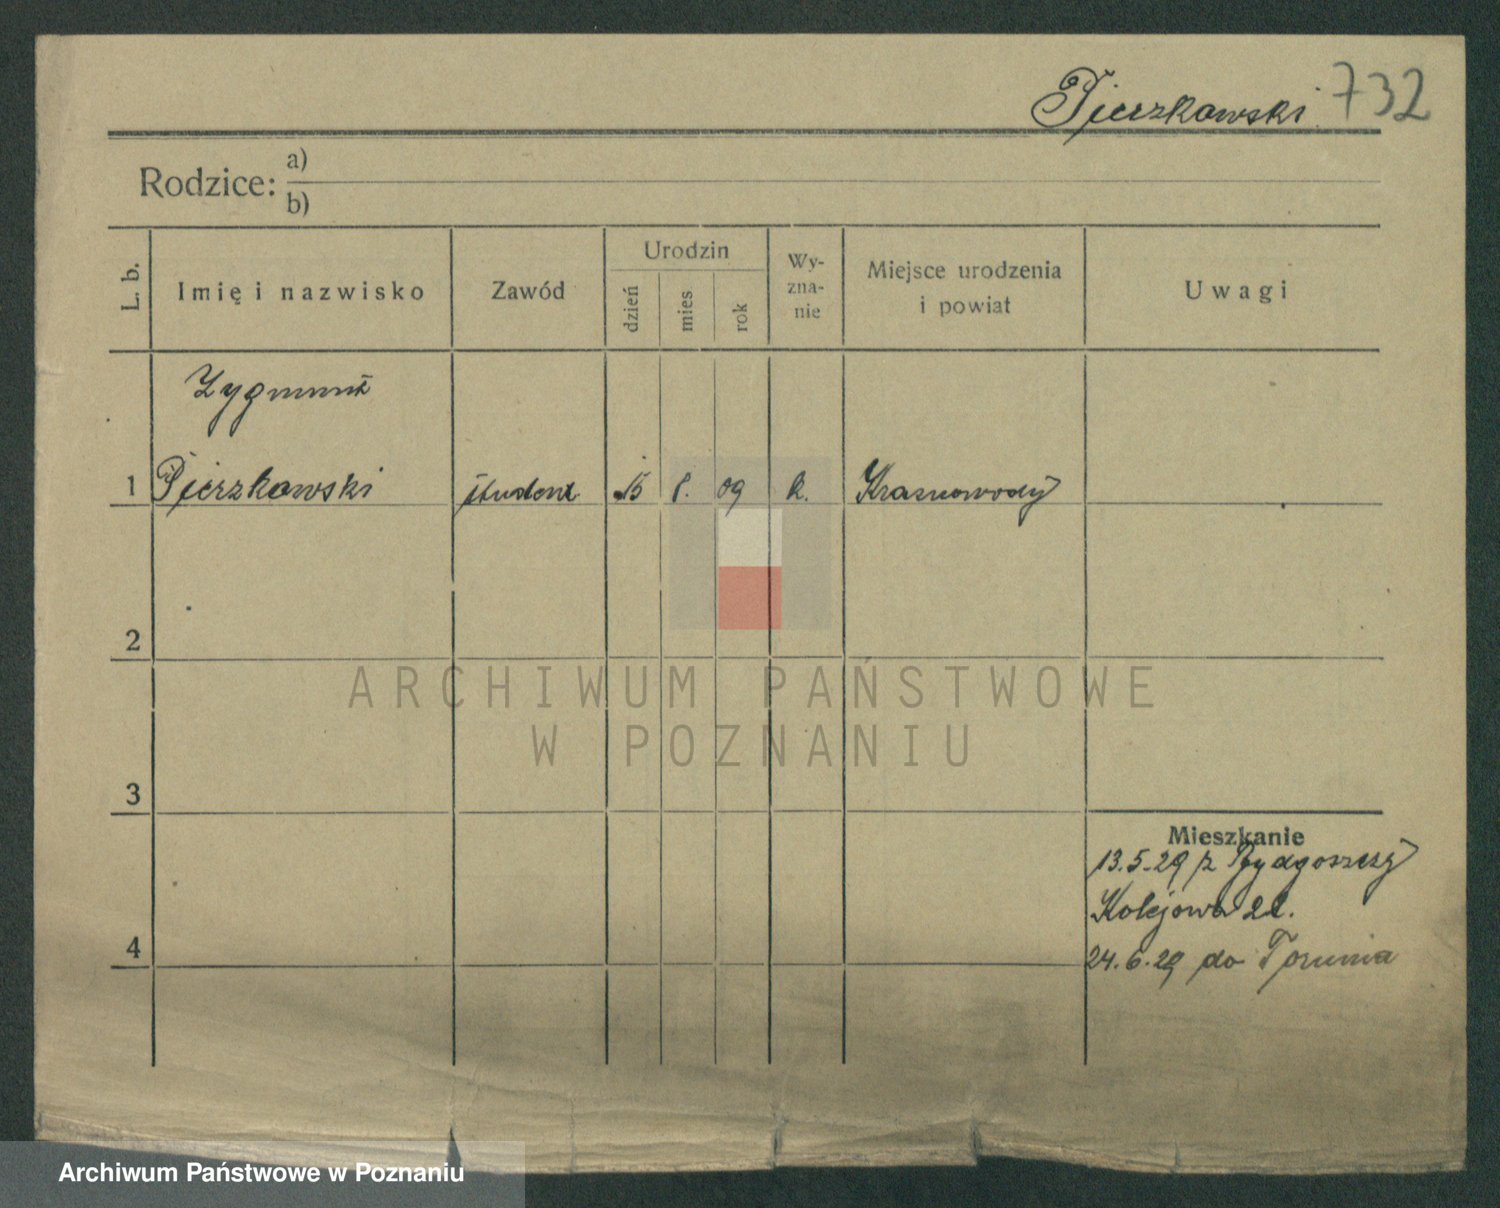 Pierzkowski 732
Rodzice: a)
b)
L. b.
Imię i nazwisko
Zawód
Urodzin
dzień
mies
rok
Wy-
zna-
nie
Miejsce urodzenia
i powiat
Uwagi
Zygmunt
1 Pierzkowski student 15 8. 09 k. Krasnowody
2
3
4
Mieszkanie
13.5.29 z Bydgoszczy
Kolejowa 22.
24.6.29 do Torunia
ARCHIWUM PAŃSTWOWE
W POZNANIU
Archiwum Państwowe w Poznaniu